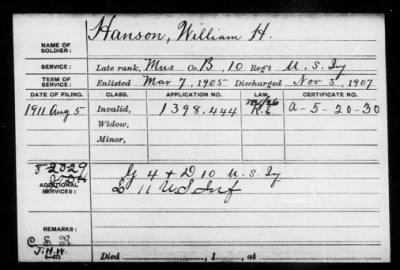 Hanson, William H.
NAME OF SOLDIER:
SERVICE: Late rank, Mus Co. B, 10 Reg't U.S. Inf
TERM OF SERVICE: Enlisted Mar 7, 1905 Discharged Nov 3, 1907
DATE OF FILING. CLASS. APPLICATION NO. LAW. CERTIFICATE NO.
1911 Aug 5 Invalid, 1398.444 a-5-20-30
Widow,
Minor,
G 4 + D 10 U.S. Inf
ADDITIONAL SERVICES: L 11 U.S. Inf
REMARKS:
Died , 1 , at